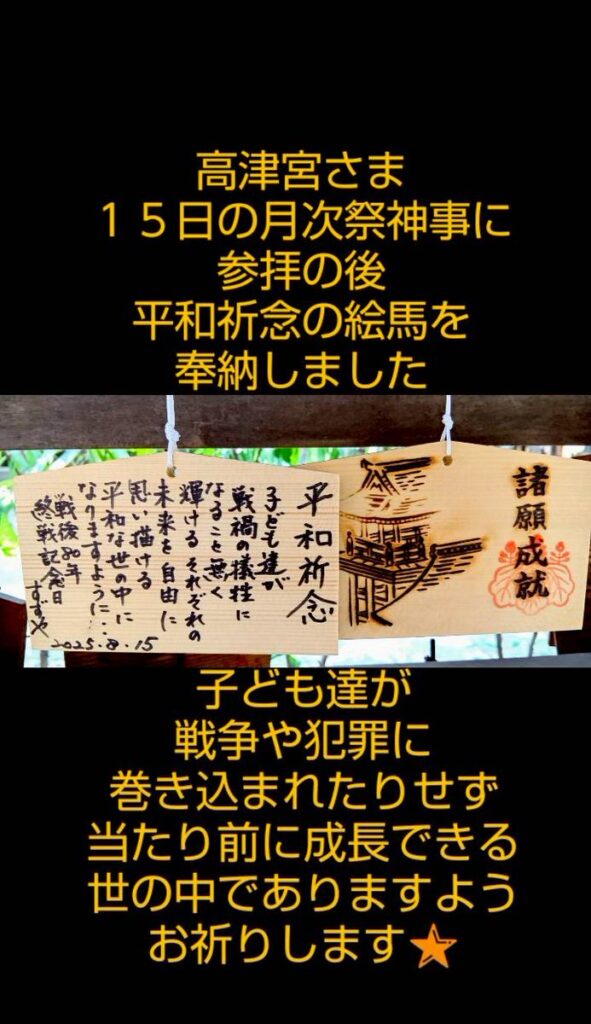 高津宮さま
１５日の月次祭神事に
参拝の後
平和祈念の絵馬を
奉納しました
平和祈念
子ども達が
戦禍の犠牲に
なること無く
輝ける それぞれの
未来を自由に
思い描ける
平和な世の中に
なりますように・・・
戦後80年
終戦記念日
すずや
2025.8.15
諸願成就
子ども達が
戦争や犯罪に
巻き込まれたりせず
当たり前に成長できる
世の中でありますよう
お祈りします